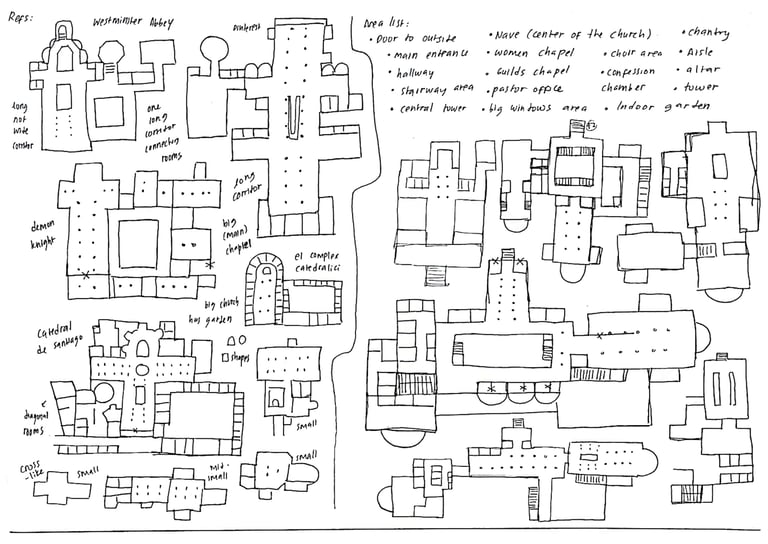 Refs:
Westminster Abbey
Pinterest
long
not
wide
corridor
one
long
corridor
connecting
rooms
long
corridor
demon
knight
big
(main)
chapel
el complex
catedralici
big church
has garden
Catedral
de santiago
shapes
diagonal
rooms
small
cross
-like
small
mid-
small
small
Area list:
• Door to outside
• main entrance
• hallway
• stairway area
• central tower
• Nave (center of the church)
• women chapel
• Guilds chapel
• pastor office
• big windows area
• choir area
• confession
chamber
• Indoor garden
• chantry
• Aisle
• altar
• tower